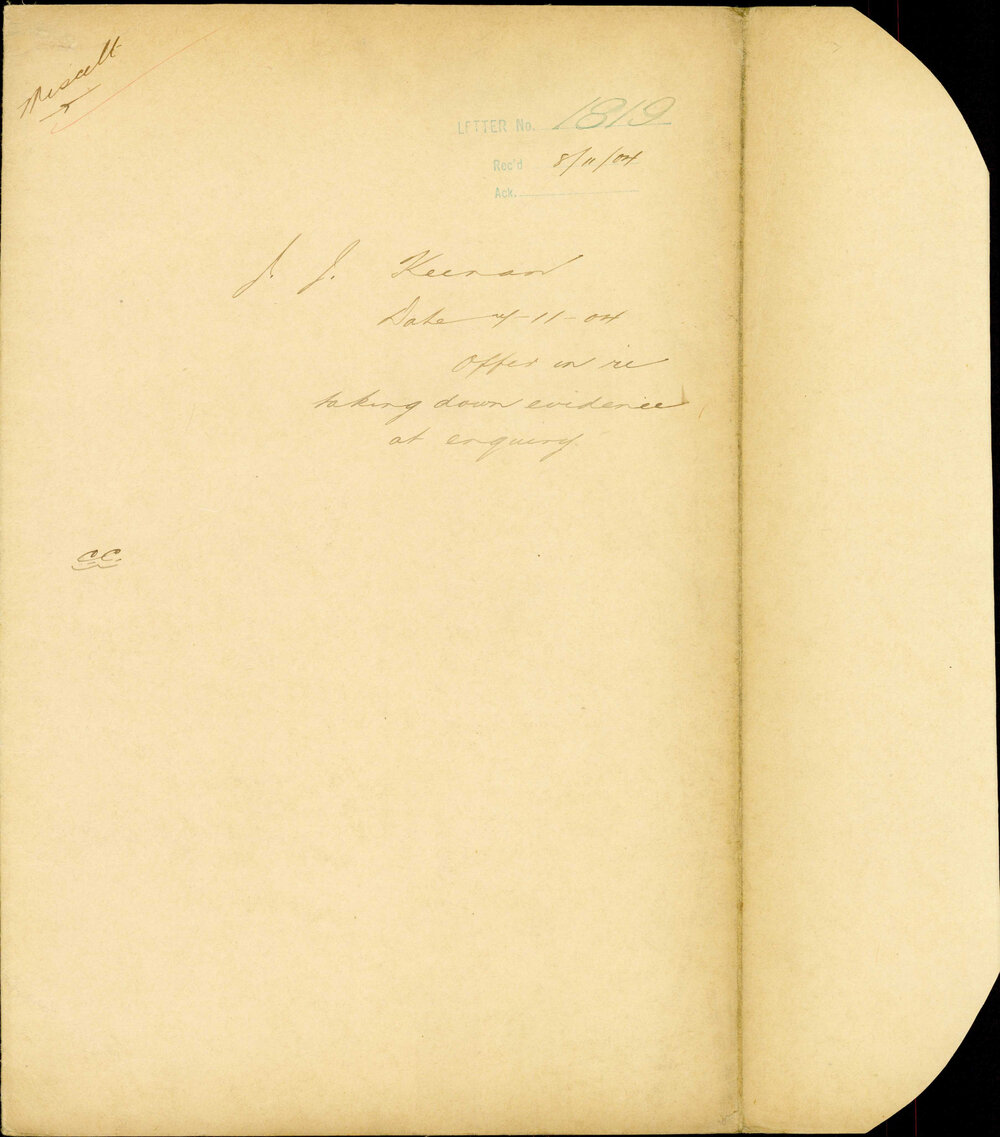 Miscell
LETTER No. 1819
Rec'd 8/11/04
Ack.
J. J. Keenan
Date 7-11-04
Offer in re
taking down evidence
at enquiry.
CC.